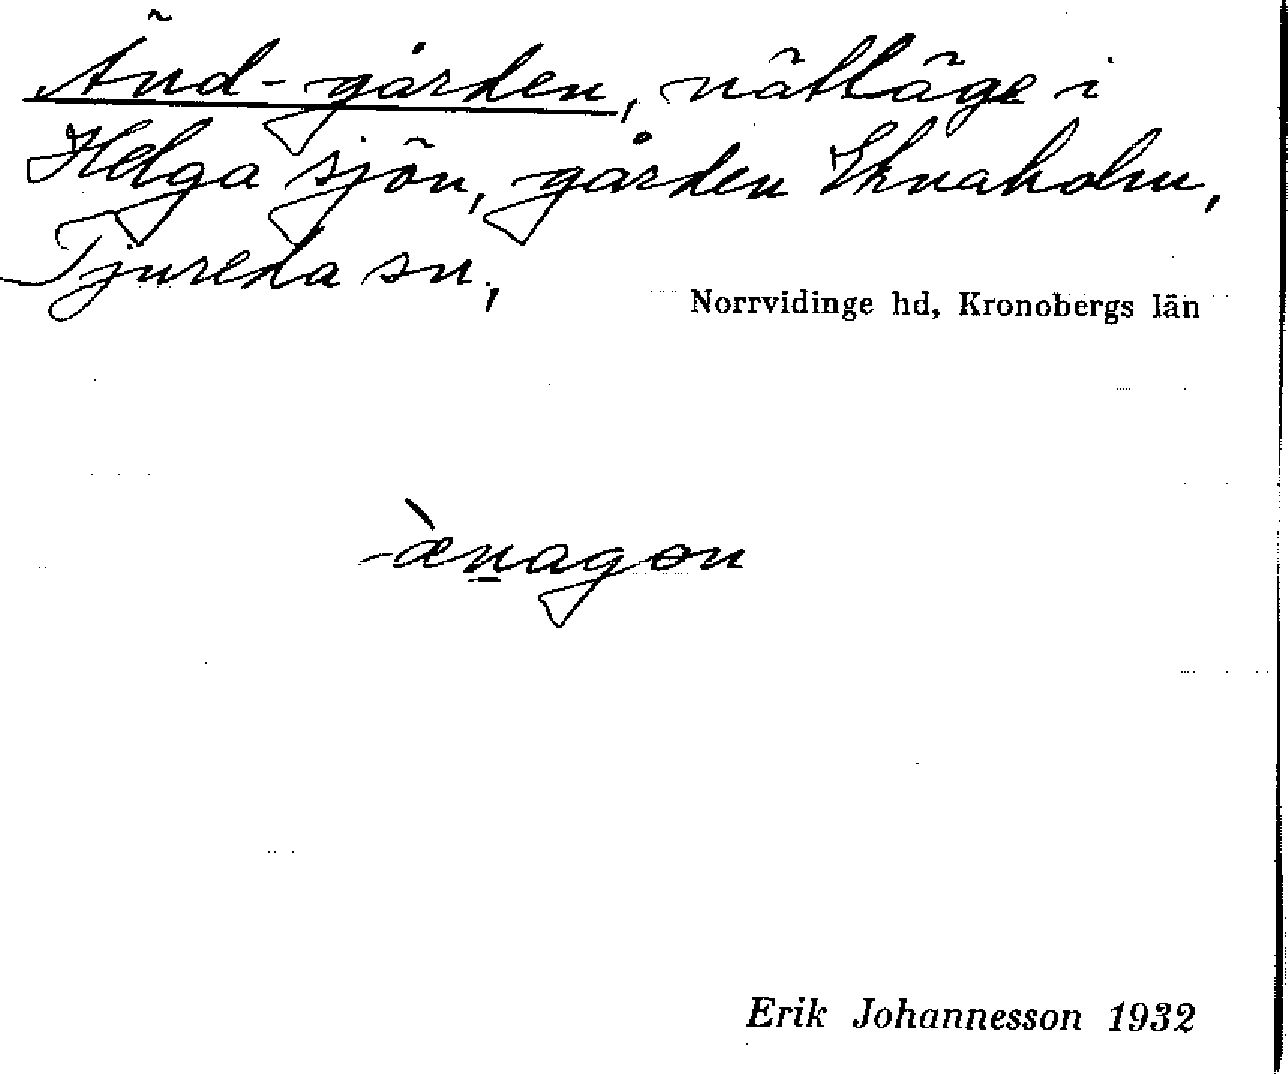 Änd-gården, nätläge i
Helga sjön, gården Iknaholm,
Tjureda sn,
Norrvidinge hd, Kronobergs län
-æ̀n̲agən
Erik Johannesson 1932